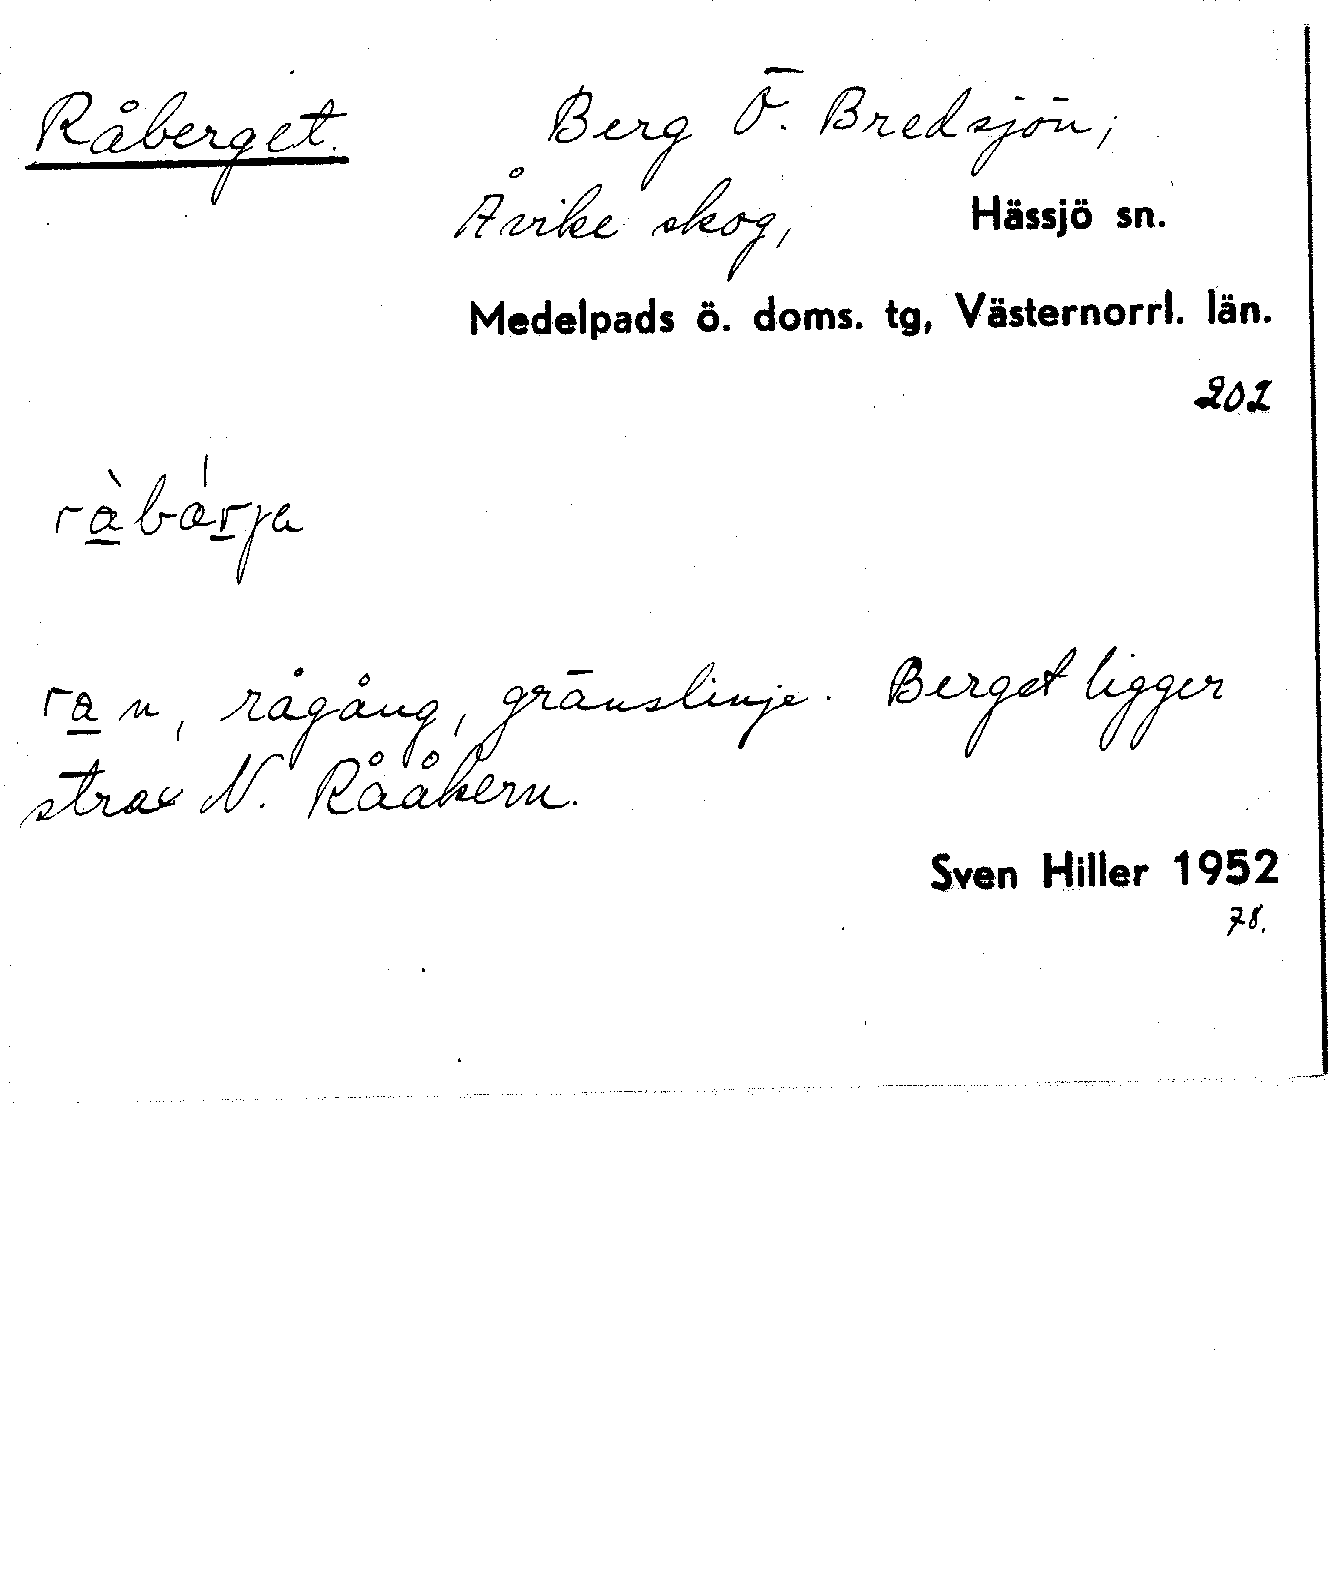 Råberget. Berg Ö. Bredsjön;
Åvike skog, Hässjö sn.
Medelpads ö. doms. tg, Västernorrl. län.
202
ra n, rågång, gränslinje. Berget ligger
strax N. Rååkern.
Sven Hiller 1952
78.